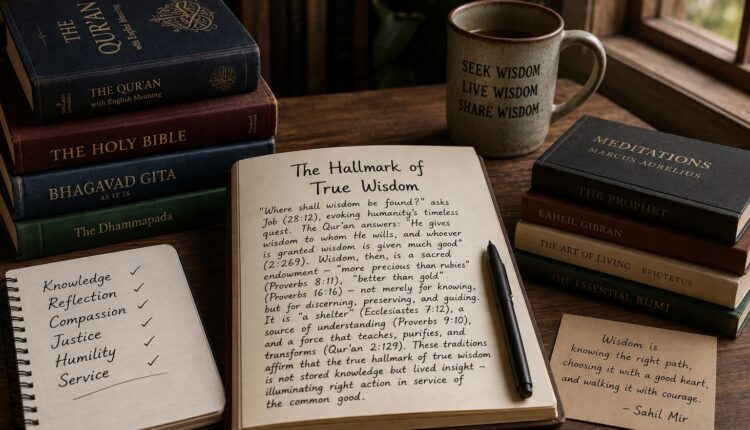 THE
QUR'AN
with English Meaning
THE QUR'AN
with English Meaning
THE HOLY BIBLE
BHAGAVAD GITA
AS IT IS
The Dhammapada
SEEK WISDOM
LIVE WISDOM
SHARE WISDOM
MEDITATIONS
MARCUS AURELIUS
THE PROPHET
KAHLIL GIBRAN
THE ART OF LIVING EPICTETUS
THE ESSENTIAL RUMI
The Hallmark of
True Wisdom
"Where shall wisdom be found?" asks
Job (28:12), evoking humanity's timeless
quest. The Qur'an answers: "He gives
wisdom to whom He wills, and whoever
is granted wisdom is given much good"
(2:269). Wisdom, then, is a sacred
endowment — "more precious than rubies"
(Proverbs 8:11), "better than gold"
(Proverbs 16:16) — not merely for knowing,
but for discerning, preserving, and guiding.
It is "a shelter" (Ecclesiastes 7:12), a
source of understanding (Proverbs 9:10),
and a force that teaches, purifies, and
transforms (Qur'an 2:129). These traditions
affirm that the true hallmark of true wisdom
is not stored knowledge but lived insight —
illuminating right action in service of
the common good.
Knowledge ✓
Reflection ✓
Compassion ✓
Justice ✓
Humility ✓
Service ✓
Wisdom is
knowing the right path,
choosing it with a good heart,
and walking it with courage.
– Sahil Mir